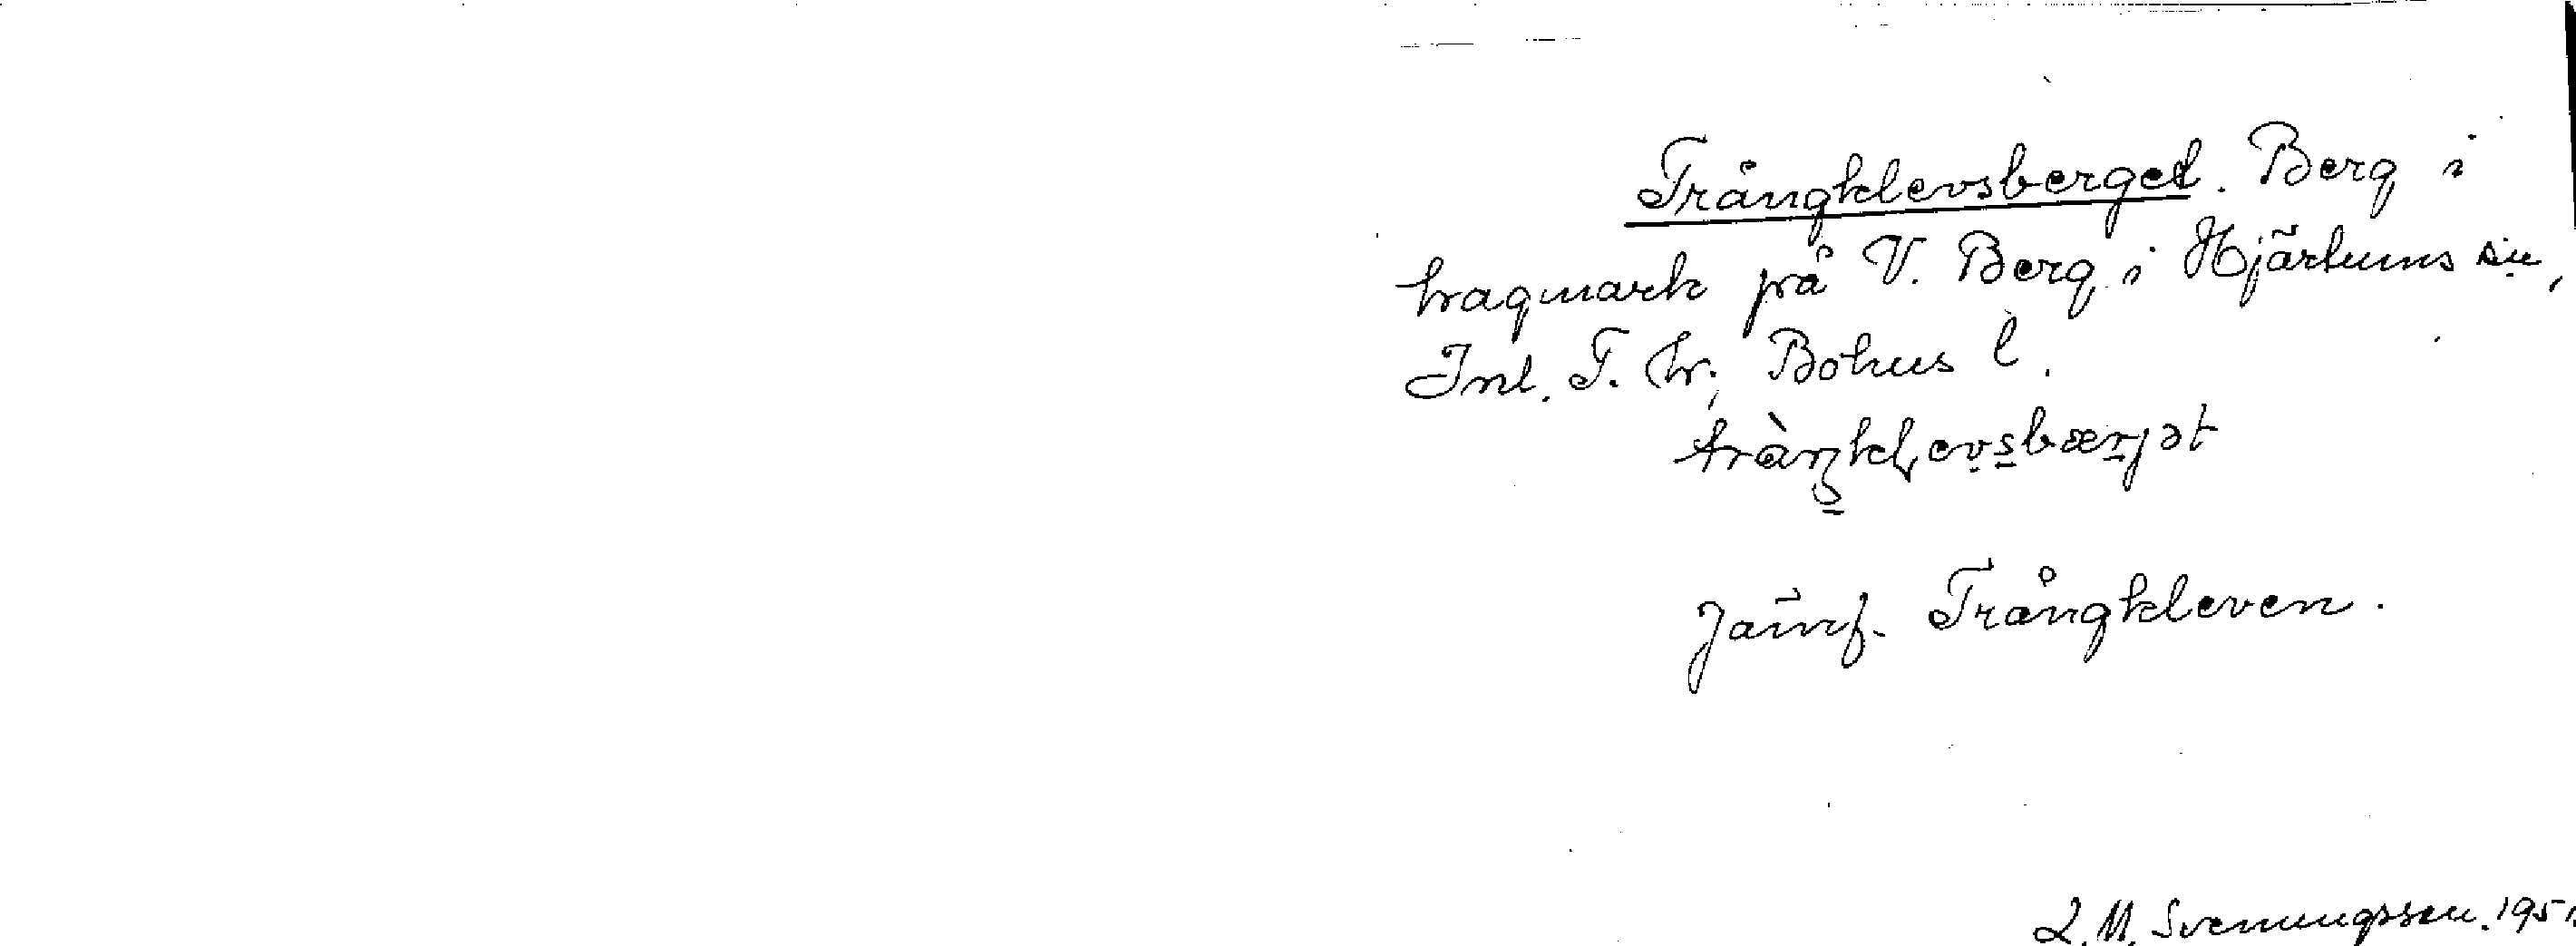 Trångklevsberget. Berg i
hagmark på V. Berg i Hjärtums sn,
Inl. T. hr, Bohus l.
Jämf. Trångkleven.
L. M. Svenungsson. 195